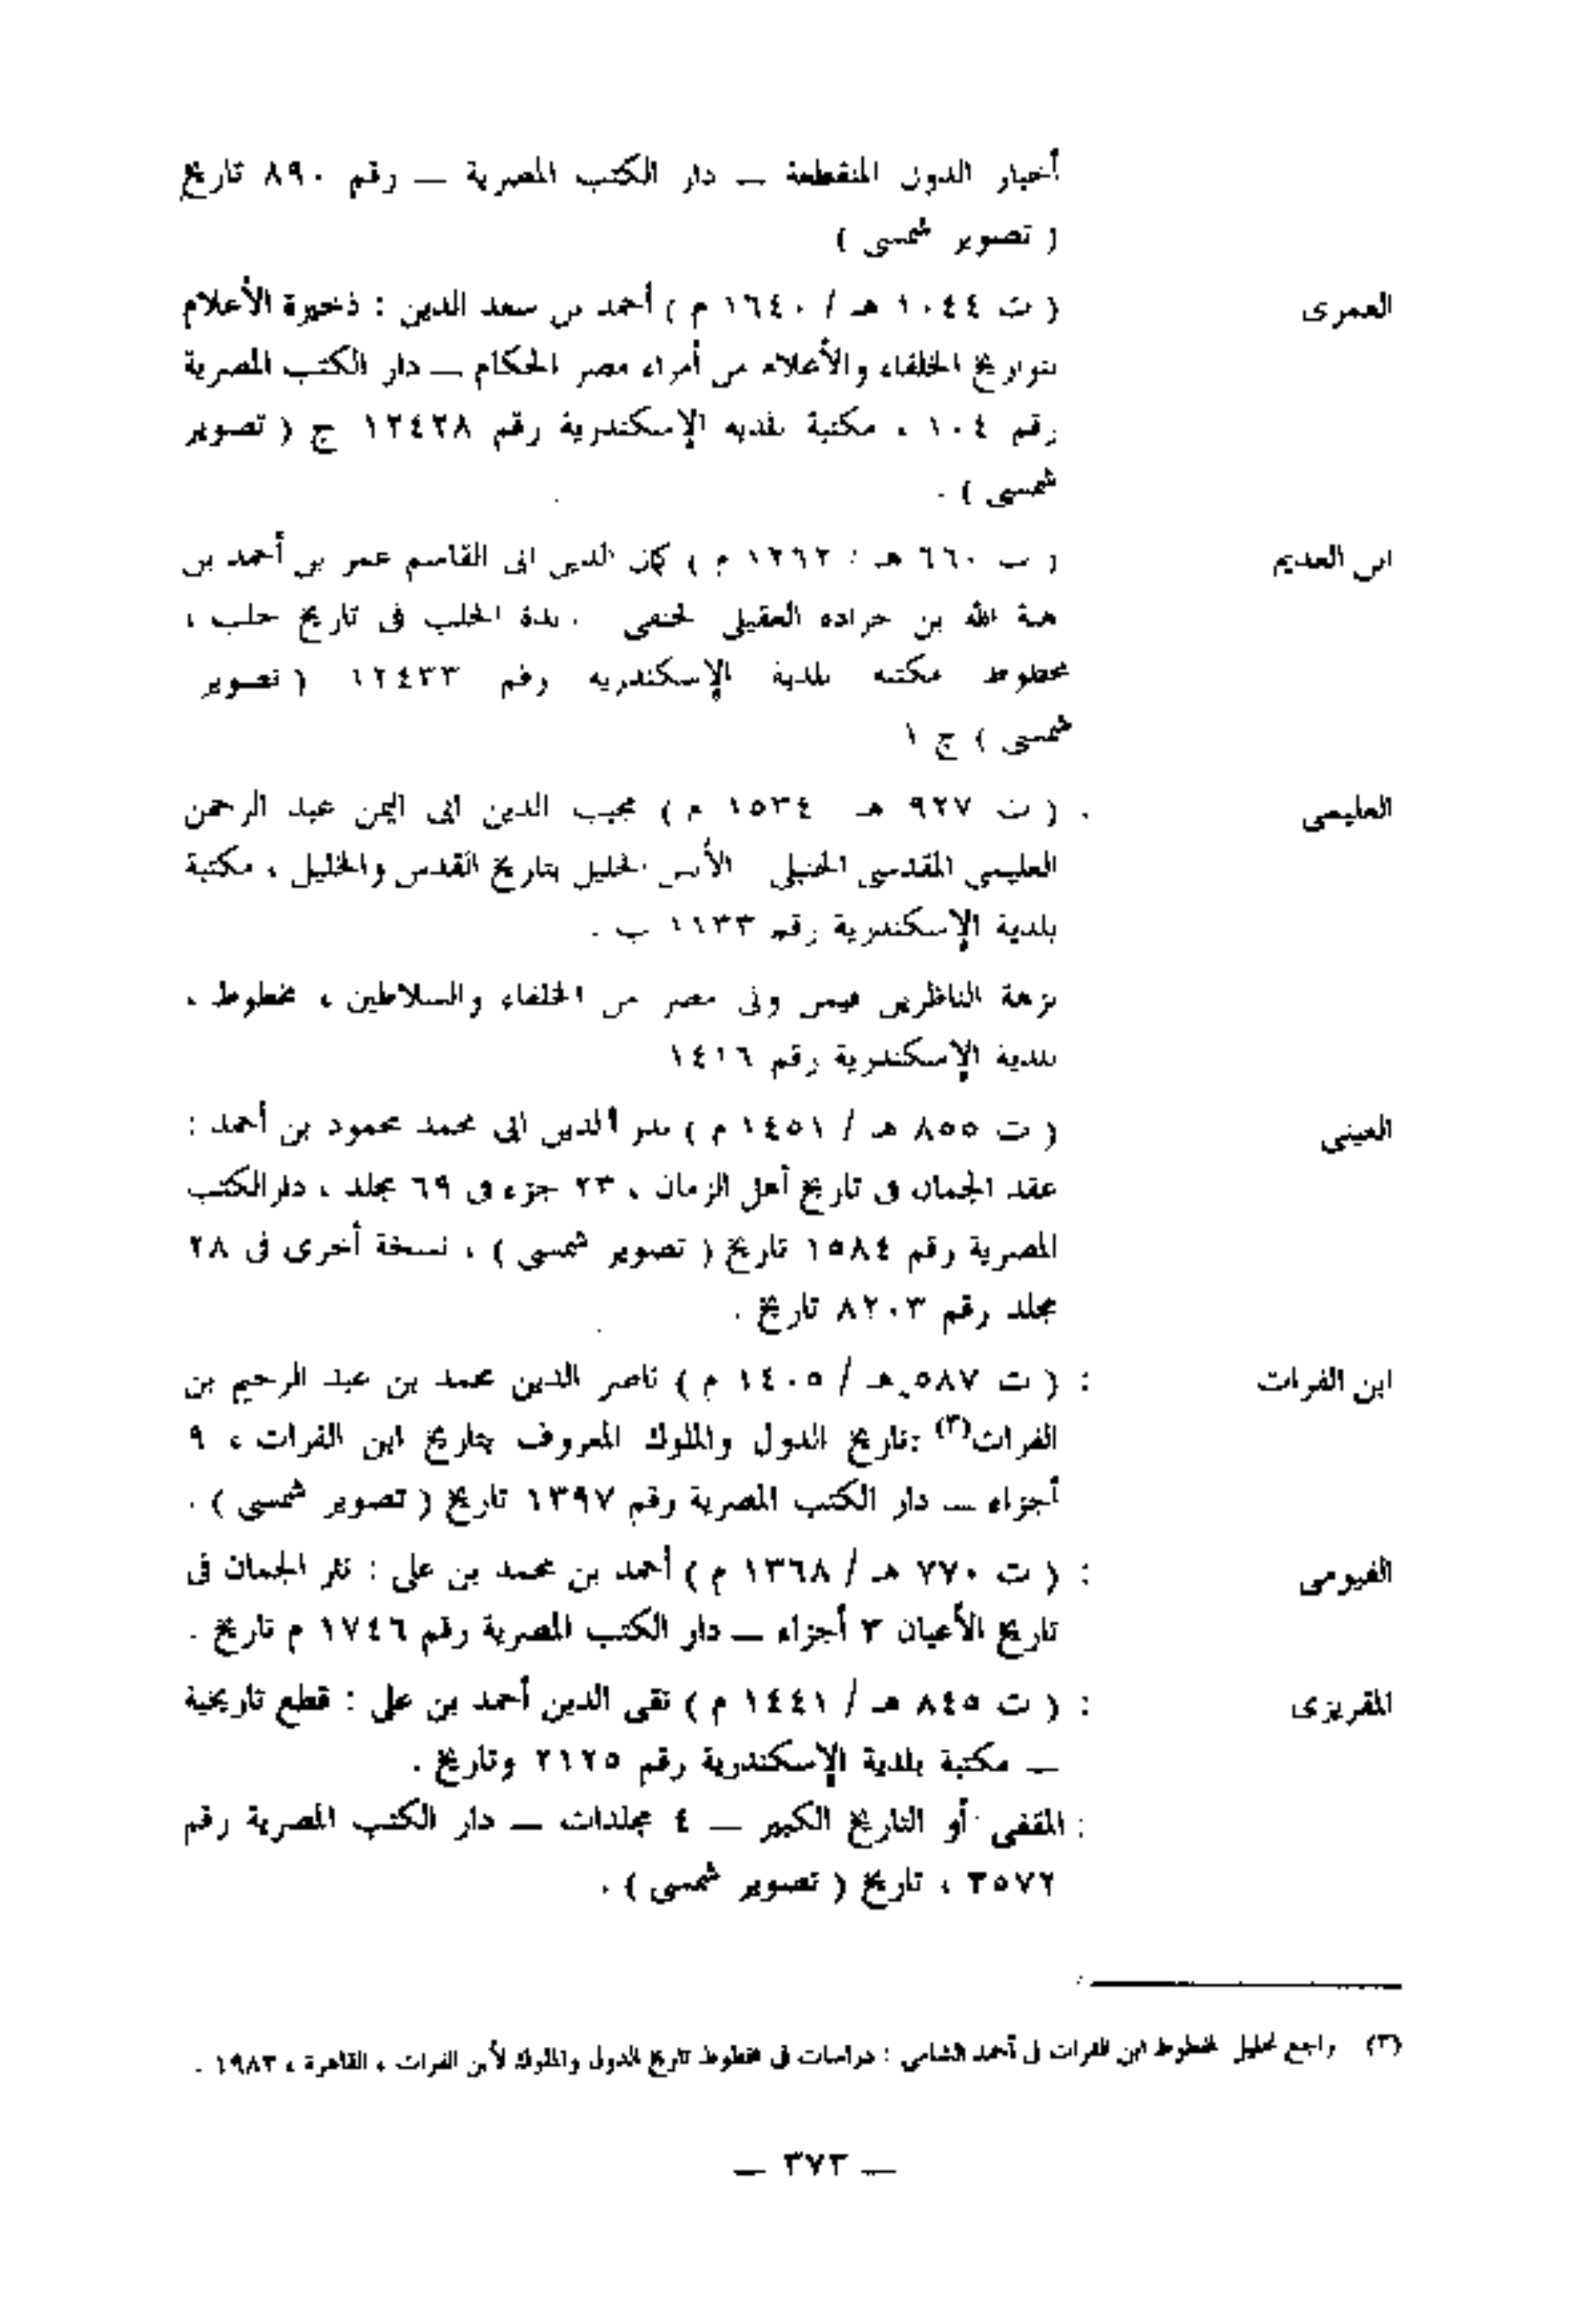 أخبار الدول المنقطعة — دار الكتب المصرية — رقم ٨٩٠ تاريخ
( تصوير شمسى )
العمرى ( ت ١٠٤٤ هـ / ١٦٤٠ م ) أحمد بن سعد الدين : ذخيرة الأعلام
بتواريخ الخلفاء والأعلام من أمراء مصر الحكام — دار الكتب المصرية
رقم ١٠٤ ، مكتبة بلدية الإسكندرية رقم ١٢٤٢٨ ج ( تصوير
شمسى ) .
ابن العديم ( ت ٦٦٠ هـ / ١٢٦٢ م ) كمال الدين ابى القاسم عمر بن أحمد بن
هبة الله بن جراده العقيلى الحنفى . زبدة الحلب فى تاريخ حلب ،
مخطوط مكتبه بلدية الإسكندريه رقم ١٢٤٣٣ ( تصوير
شمسى ) ج ١
العليمى . ( ت ٩٢٧ هـ ١٥٣٤ م ) مجيب الدين ابى اليمن عبد الرحمن
العليمى المقدسى الحنبلى الأنس الجليل بتاريخ القدس والخليل ، مكتبة
بلدية الإسكندرية رقم ١٦٣٣ ب .
نزهة الناظرين فيمن ولى مصر من الخلفاء والسلاطين ، مخطوط ،
بلدية الإسكندرية رقم ١٤١٦
العينى ( ت ٨٥٥ هـ / ١٤٥١ م ) بدر الدين ابى محمد محمود بن أحمد :
عقد الجمان فى تاريخ أهل الزمان ، ٢٣ جزء فى ٦٩ مجلد ، دارالكتب
المصرية رقم ١٥٨٤ تاريخ ( تصوير شمسى ) ، نسخة أخرى فى ٢٨
مجلد رقم ٨٢٠٣ تاريخ .
ابن الفرات : ( ت ٥٨٧ هـ / ١٤٠٥ م ) ناصر الدين محمد بن عبد الرحيم بن
الفرات(٣) :تاريخ الدول والملوك المعروف بتاريخ ابن الفرات ، ٩
أجزاء — دار الكتب المصرية رقم ١٣٩٧ تاريخ ( تصوير شمسى ) .
الفيومى : ( ت ٧٧٠ هـ / ١٣٦٨ م ) أحمد بن محمد بن على : نثر الجمان فى
تاريخ الأعيان ٣ أجزاء — دار الكتب المصرية رقم ١٧٤٦ م تاريخ .
المقريزى : ( ت ٨٤٥ هـ / ١٤٤١ م ) تقى الدين أحمد بن على : قطع تاريخية
— مكتبة بلدية الإسكندرية رقم ٢١٢٥ وتاريخ .
: المقفى أو التاريخ الكبير — ٤ مجلدات — دار الكتب المصرية رقم
٣٥٧٢ ، تاريخ ( تصوير شمسى ) .
(٣) راجع تحليل لمخطوط ابن الفرات فى أحمد الشامى : دراسات فى مخطوط تاريخ الدول والملوك لأبن الفرات ، القاهرة ، ١٩٨٣ .
— ٣٧٣ —